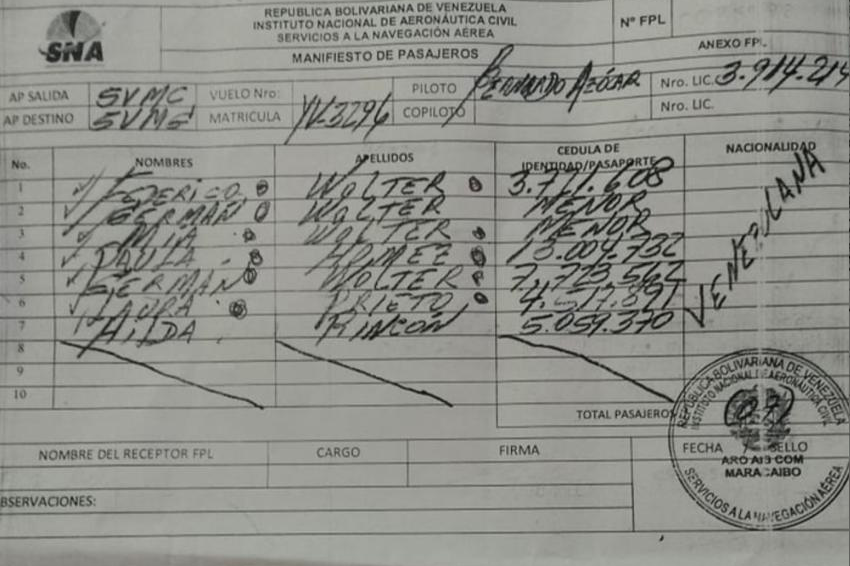 REPUBLICA BOLIVARIANA DE VENEZUELA
INSTITUTO NACIONAL DE AERONÁUTICA CIVIL
SERVICIOS A LA NAVEGACIÓN AÉREA
Nº FPL
SNA
MANIFIESTO DE PASAJEROS
ANEXO FPL
AP SALIDA SVMC VUELO Nro: PILOTO BERNARDO AZÓCAR Nro. LIC. 3.914.214
AP DESTINO SVMG MATRICULA YV-3296 COPILOTO Nro. LIC.
No. NOMBRES APELLIDOS CEDULA DE IDENTIDAD/PASAPORTE NACIONALIDAD
1 FEDERICO WOLTER 3.7 1.608
2 GERMAN WOLTER MENOR
3 MIA WOLTER MENOR
4 PAULA 13.004.732
5 GERMAN WOLTER 7.723.562
6 LAURA PRIETO
7 HILDA RINCÓN 5.059.370
VENEZOLANA
8
9
10
TOTAL PASAJEROS
NOMBRE DEL RECEPTOR FPL CARGO FIRMA FECHA / SELLO
OBSERVACIONES:
REPÚBLICA BOLIVARIANA DE VENEZUELA
INSTITUTO NACIONAL DE AERONÁUTICA CIVIL
ARO AIS COM
MARACAIBO
SERVICIOS A LA NAVEGACIÓN AÉREA